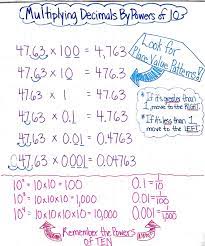 Multiplying Decimals By Powers of 10
47.63 x 100 = 4,763
47.63 x 10 = 476.3
47.63 x 1 = 47.63
47.63 x 0.1 = 4.763
47.63 x 0.01 = 0.4763
47.63 x 0.001 = 0.04763
Look for
Place Value
Patterns!
* If it's greater than
1, move to the RIGHT
* If it's less than 1,
move to the LEFT
10² = 10x10 = 100
10³ = 10x10x10 = 1,000
10⁴ = 10x10x10x10 = 10,000
0.1 = 1/10
0.01 = 1/100
0.001 = 1/1000
Remember the Powers
of TEN